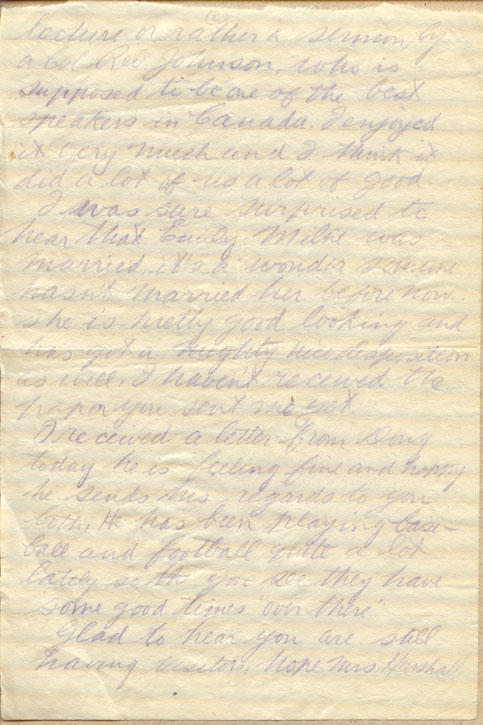 (2)
lecture or rather a sermon, by
a Col Rev Johnson, who is
supposed to be one of the best
speakers in Canada. I enjoyed
it very much and I think it
did a lot of us a lot of good
I was sure surprised to
hear that Emily Milne was
married, it's a wonder someone
hasn't married her before now.
she is pretty good looking and
has got a mighty nice disposition
as well. I haven't received the
paper you sent me yet.
I received a letter from Doug
today he is feeling fine and happy
he sends his regards to you
both. He has been playing base-
ball and football quite a lot
lately so you see they have
some good times "over there"
Glad to hear you are still
having visitors, hope Mrs